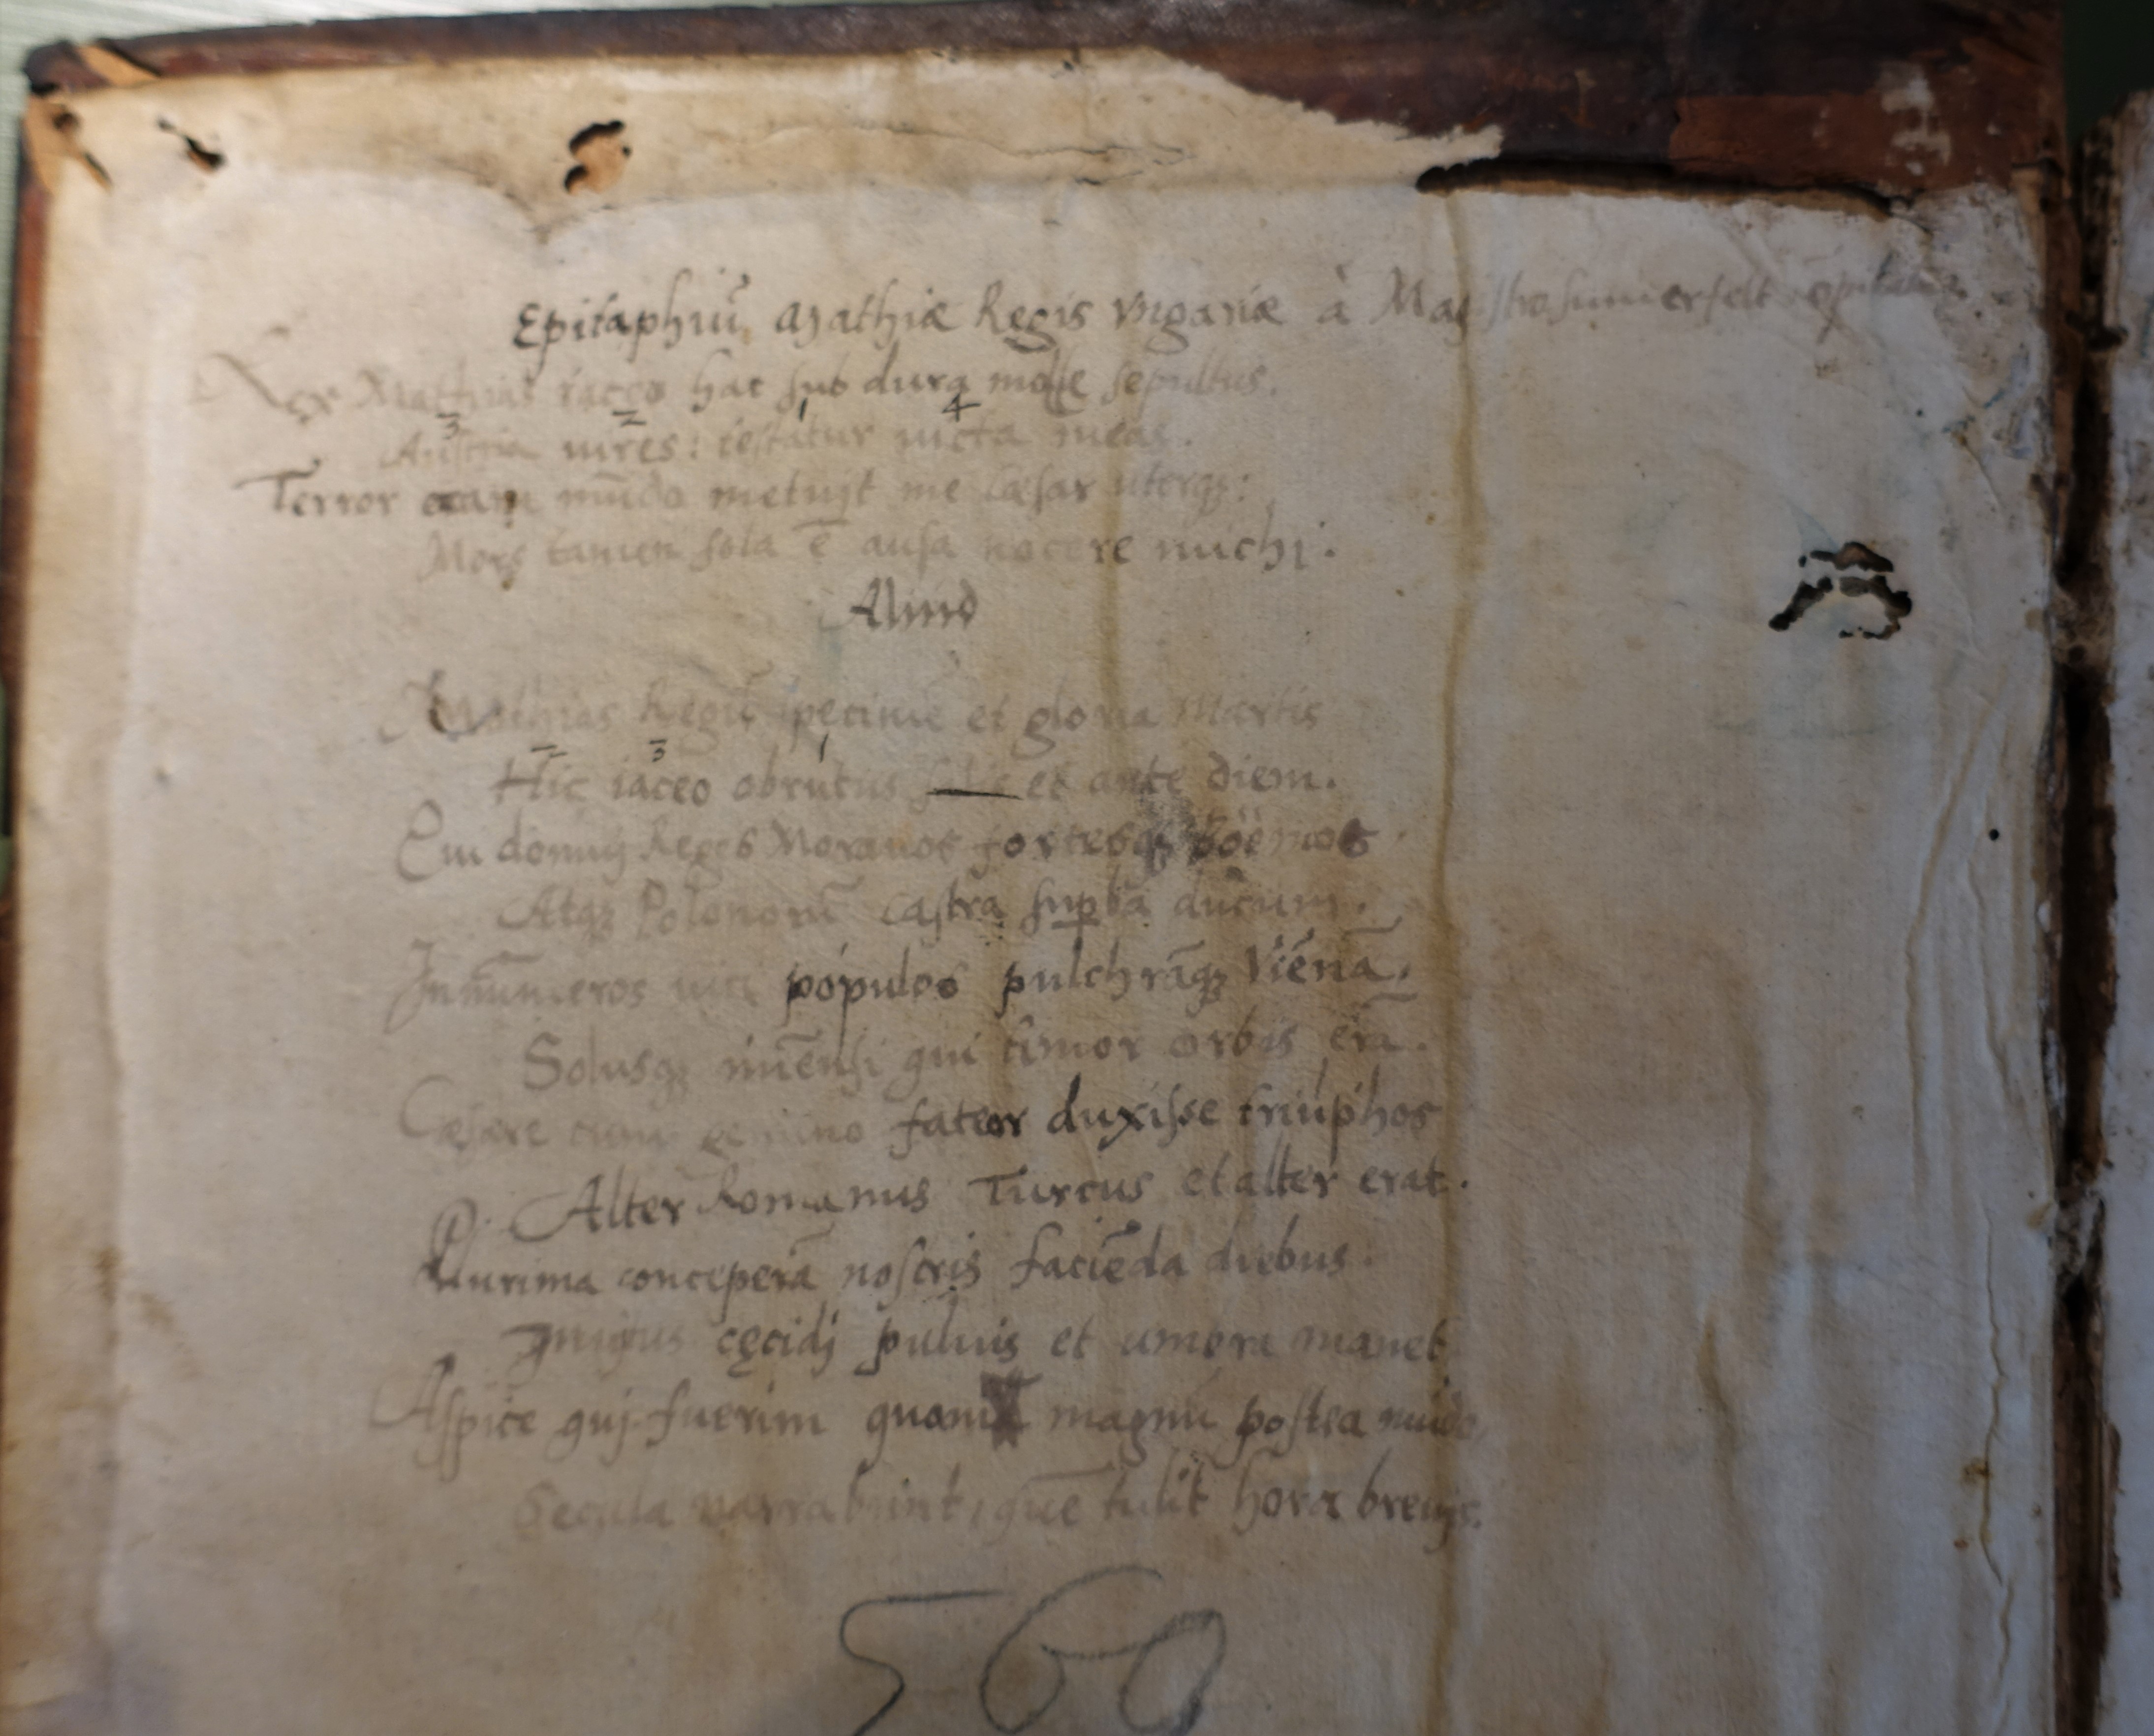 Epitaphiū Mathiæ Regis vngariæ à Magistro sumerfelt
Rex Matthias iaceo hac sub dura mole sepultus.
3 2 1 4
Austria uires: testatur uicta meas.
Terror eram mūdo metuit me Cæsar uterqꝫ:
Mors tamen sola ē ausa nocere michi.
Aliud
Mathias Regū spęcimē et gloria Martis
2 3 1
Hic iaceo obrutus et ante diem.
Qui domuj Reges Morauos fortesqꝫ Boëmos
Atqꝫ Polonorū castra suꝑba ducum.
Innūmeros uici populos pulchrāqꝫ Viēnā.
Solusqꝫ imēsi qui timor orbis erā.
Cæsare cum gemino fateor duxisse triūphos
Alter Romanus Turcus et alter erat.
P.
Plurima conceperā nostris faciēda diebus.
cęcidj puluis et umbra manet
Aspice quj fuerim quam magnū postea
Secula narrabunt, quē tulit hora breuis.
560